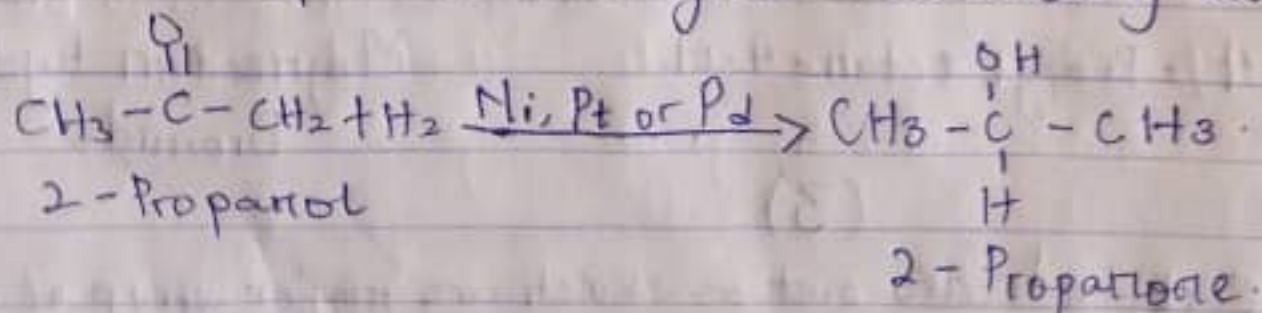 O
||
CH3 - C - CH2 + H2 Ni, Pt or Pd > CH3 - C - CH3.
OH
H
2 - Propanol
2 - Propanone.